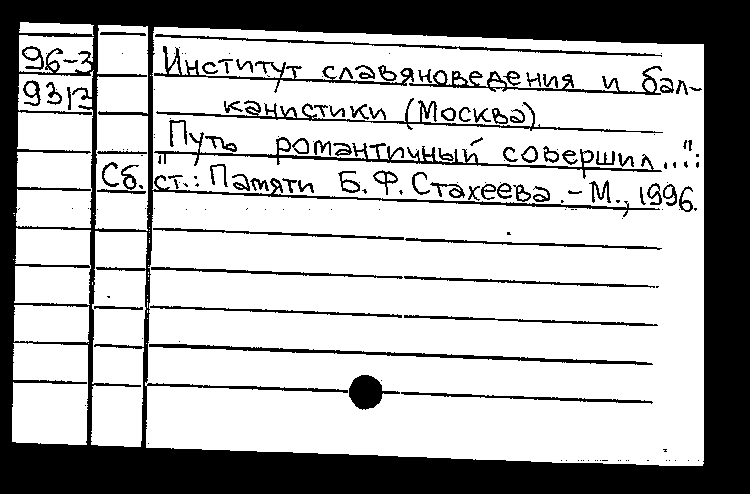 96-3 Институт славяноведения и бал-
9313 канистики (Москва)
"Путь романтичный совершил...":
Сб. ст.: Памяти Б. Ф. Стахеева. - М., 1996.